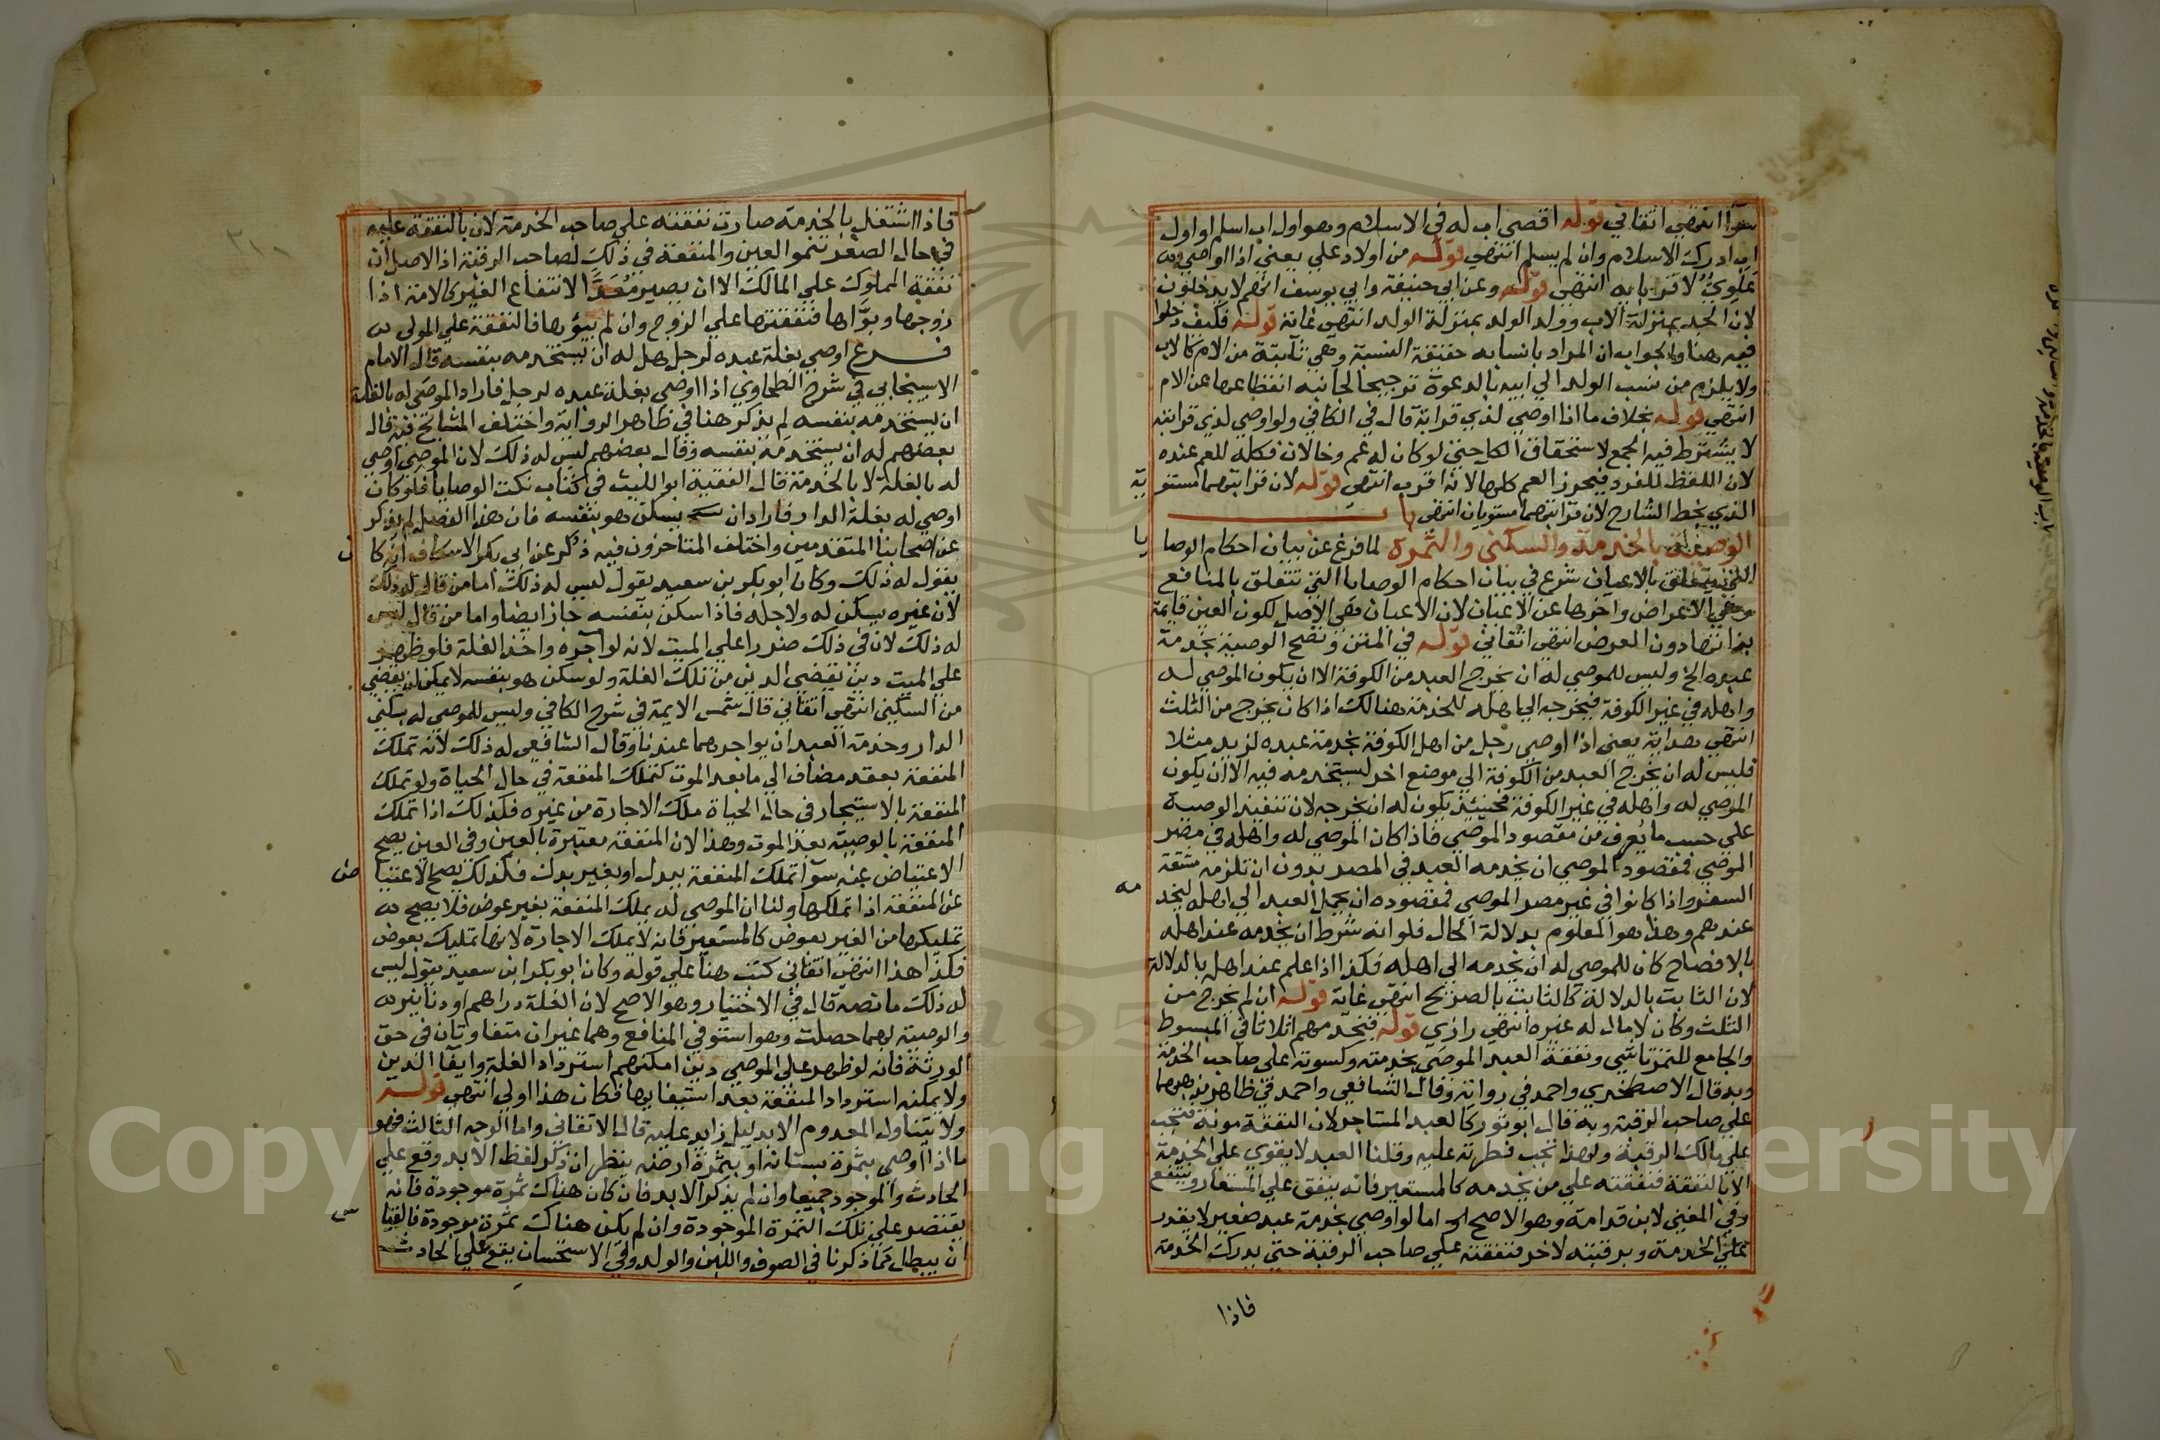 سوآ انتهي اتقاني قوله اقصى اب له في الاسلام وهو اول اب اسلم او اول
اب ادرك الاسلام وان لم يسلم انتهي قوله من اولاد علي يعني اذا اوصي
علوي لاقربايه انتهي قوله وعن ابي حنيفة وابي يوسف انهم لا يدخلون
لان الجد بمنزلة الاب وولد الولد بمنزلة الولد انتهي غاية قوله فكيف دخلوا
فيه هنا والجواب ان المراد بانسابه حقيقة النسبة وهي ثابتة من الام كالاب
ولا يلزم من نسب الولد الي ابيه بالدعوة ترجيحا لجانبه انقطاعها عن الام
انتهي قوله بخلاف ما اذا اوصي لذي قرابة قال في الكافي ولو اوصي لذي قرابته
لا يشترط فيه الجمع لاستحقاق الكل حتي لو كان له عم وخالان فكله للعم عنده
لان اللفظ للفرد فيحرز العم كلها لانه اقرب انتهي قوله لان قرابتهما مستو
ية
الذي بخط الشارح لان قرابتهما مستويان انتهي باب
الوصية بالخدمة والسكني والثمرة لما فرغ عن بيان احكام الوصا
يا
التي تتعلق بالاعيان شرع في بيان احكام الوصايا التي تتعلق بالمنافع
وهي الاعراض واخرها عن الاعيان لان الاعيان هي الاصل لكون العين قايمة
بذاتها دون العرض انتهي اتقاني قوله في المتن وتصح الوصية بخدمة
عبده الخ وليس للموصي له ان يخرج العبد من الكوفة الا ان يكون الموصي له
واهله في غير الكوفة فيخرجه الي اهله للخدمة هنالك اذا كان يخرج من الثلث
انتهي هداية يعني اذا اوصي رجل من اهل الكوفة بخدمة عبده لزيد مثلا
فليس له ان يخرج العبد من الكوفة الي موضع اخر ليستخدمه فيه الا ان يكون
الموصي له واهله في غير الكوفة فحينئذ يكون له ان يخرجه لان تنفيذ الوصية
علي حسب ما يعرف من مقصود الموصي فاذا كان الموصي له واهله في مصر
الموصي فمقصود الموصي ان يخدمه العبد في المصر بدون ان تلزمه مشقة
السفر واذا كانوا في غير مصر الموصي فمقصوده ان يحمل العبد الي اهله ليخد
مه
عندهم وهذا هو المعلوم بدلالة الحال فلو انه شرط ان يخدمه عند اهله
بالافصاح كان للموصي له ان يخدمه الي اهله فكذا اذا علم عند اهله بالدلالة
لان الثابت بالدلالة كالثابت بالصريح انتهي غاية قوله ان لم يخرج من
الثلث وكان لا مال له غيره انتهي رازي قوله فيخدمهم اثلاثا في المبسوط
والجامع للتمرتاشي ونفقة العبد الموصي بخدمته وكسوته علي صاحب الخدمة
وبه قال الاصطخري واحمد في رواية وقال الشافعي واحمد في ظاهر مذهبهما
علي صاحب الرقبة وبه قال ابو ثور كالعبد المستاجر لان النفقة مونة فتجب
علي مالك الرقبة ولهذا تجب فطرته عليه وقلنا العبد لا يقوي علي الخدمة
الا بالنفقة فنفقته علي من يخدمه كالمستعير فانه ينفق علي المستعار وينتفع
وفي المغني لابن قدامة وهو الاصح اما لو اوصي بخدمة عبد صغير لا يقدر
علي الخدمة وبرقبته لاخر فنفقته علي صاحب الرقبة حتي يدرك الخدمة
فاذا
فاذا اشتغل بالخدمة صارت نفقته علي صاحب الخدمة لان بالنفقة عليه
في حال الصغر تنمو العين والمنفعة في ذلك لصاحب الرقبة اذ الاصل ان
نفقة المملوك علي المالك الا ان يصير معدا لانتفاع الغير كالامة اذا
زوجها وبوأها فنفقتها علي الزوج وان لم يبؤها فالنفقة علي المولي
فرع اوصي بغلة عبده لرجل هل له ان يستخدمه بنفسه قال الامام
الاسبيجابي في شرح الطحاوي اذا اوصي بغلة عبده لرجل فاراد الموصي له بالغلة
ان يستخدمه بنفسه لم يذكر هنا في ظاهر الرواية واختلف المشايخ فيه قال
بعضهم له ان يستخدمه بنفسه وقال بعضهم ليس له ذلك لان الموصي اوصي
له بالغلة لا بالخدمة قال الفقيه ابو الليث في كتاب نكت الوصايا فلو كان
اوصي له بغلة الدار فاراد ان يسكن هو بنفسه فان هذا الفصل لم يذكر
عن اصحابنا المتقدمين واختلف المتاخرون فيه ذكر عن ابي بكر الاسكاف انه كا
ن
يقول له ذلك وكان ابو بكر بن سعيد يقول ليس له ذلك اما من قال له ذلك
لان غيره يسكن له ولاجله فاذا سكن بنفسه جاز ايضا واما من قال ليس
له ذلك لان في ذلك ضررا علي الميت لانه لو آجره واخذ الغلة فلو ظهر
علي الميت دين يقضي الدين من تلك الغلة ولو سكن هو بنفسه لا يمكن ان يقضي
من السكني انتهي اتقاني قال شمس الايمة في شرح الكافي وليس للموصي له بسكني
الدار وخدمة العبد ان يواجرهما عندنا وقال الشافعي له ذلك لانه تملك
المنفعة بعقد مضاف الي ما بعد الموت كتملك المنفعة في حال الحياة ولو تملك
المنفعة بالاستيجار في حال الحياة ملك الاجارة من غيره فكذلك اذا تملك
المنفعة بالوصية بعد الموت وهذا لان المنفعة معتبرة بالعين وفي العين يصح
الاعتياض عنه سوآ تملك المنفعة ببدل او بغير بدل فكذلك يصح الاعتيا
ض
عن المنفعة اذا تملكها ولنا ان الموصي له يملك المنفعة بغير عوض فلا يصح
تمليكها من الغير بعوض كالمستعير فانه لا يملك الاجارة لانها تمليك بعوض
فكذا هذا انتهي اتقاني كتب هنا علي قوله وكان ابو بكر ابن سعيد يقول ليس
له ذلك ما نصه قال في الاختيار وهو الاصح لان الغلة دراهم او دنانير
والوصية بهما حصلت وهو استوفي المنافع وهما غيران متفاوتان في حق
الورثة فانه لو ظهر علي الموصي دين امكنهم استرداد الغلة وايفآ الدين
ولا يمكنه استرداد المنفعة بعد استيفايها فكان هذا اولي انتهي قوله
ولا يتناول المعدوم الا بدليل زايد عليه قال الاتقاني واما الوجه الثالث فهو
ما اذا اوصي بثمرة بستانه او بثمرة ارضه ينظر ان ذكر لفظ الابد وقع علي
الحادث والموجود جميعا وان لم يذكر الابد فان كان هناك ثمرة موجودة فانه
يقتصر علي تلك الثمرة الموجودة وان لم يكن هناك ثمرة موجودة فالقيا
س
ان يبطل كما ذكرنا في الصوف واللبن والولد وفي الاستحسان يقع علي الحادث